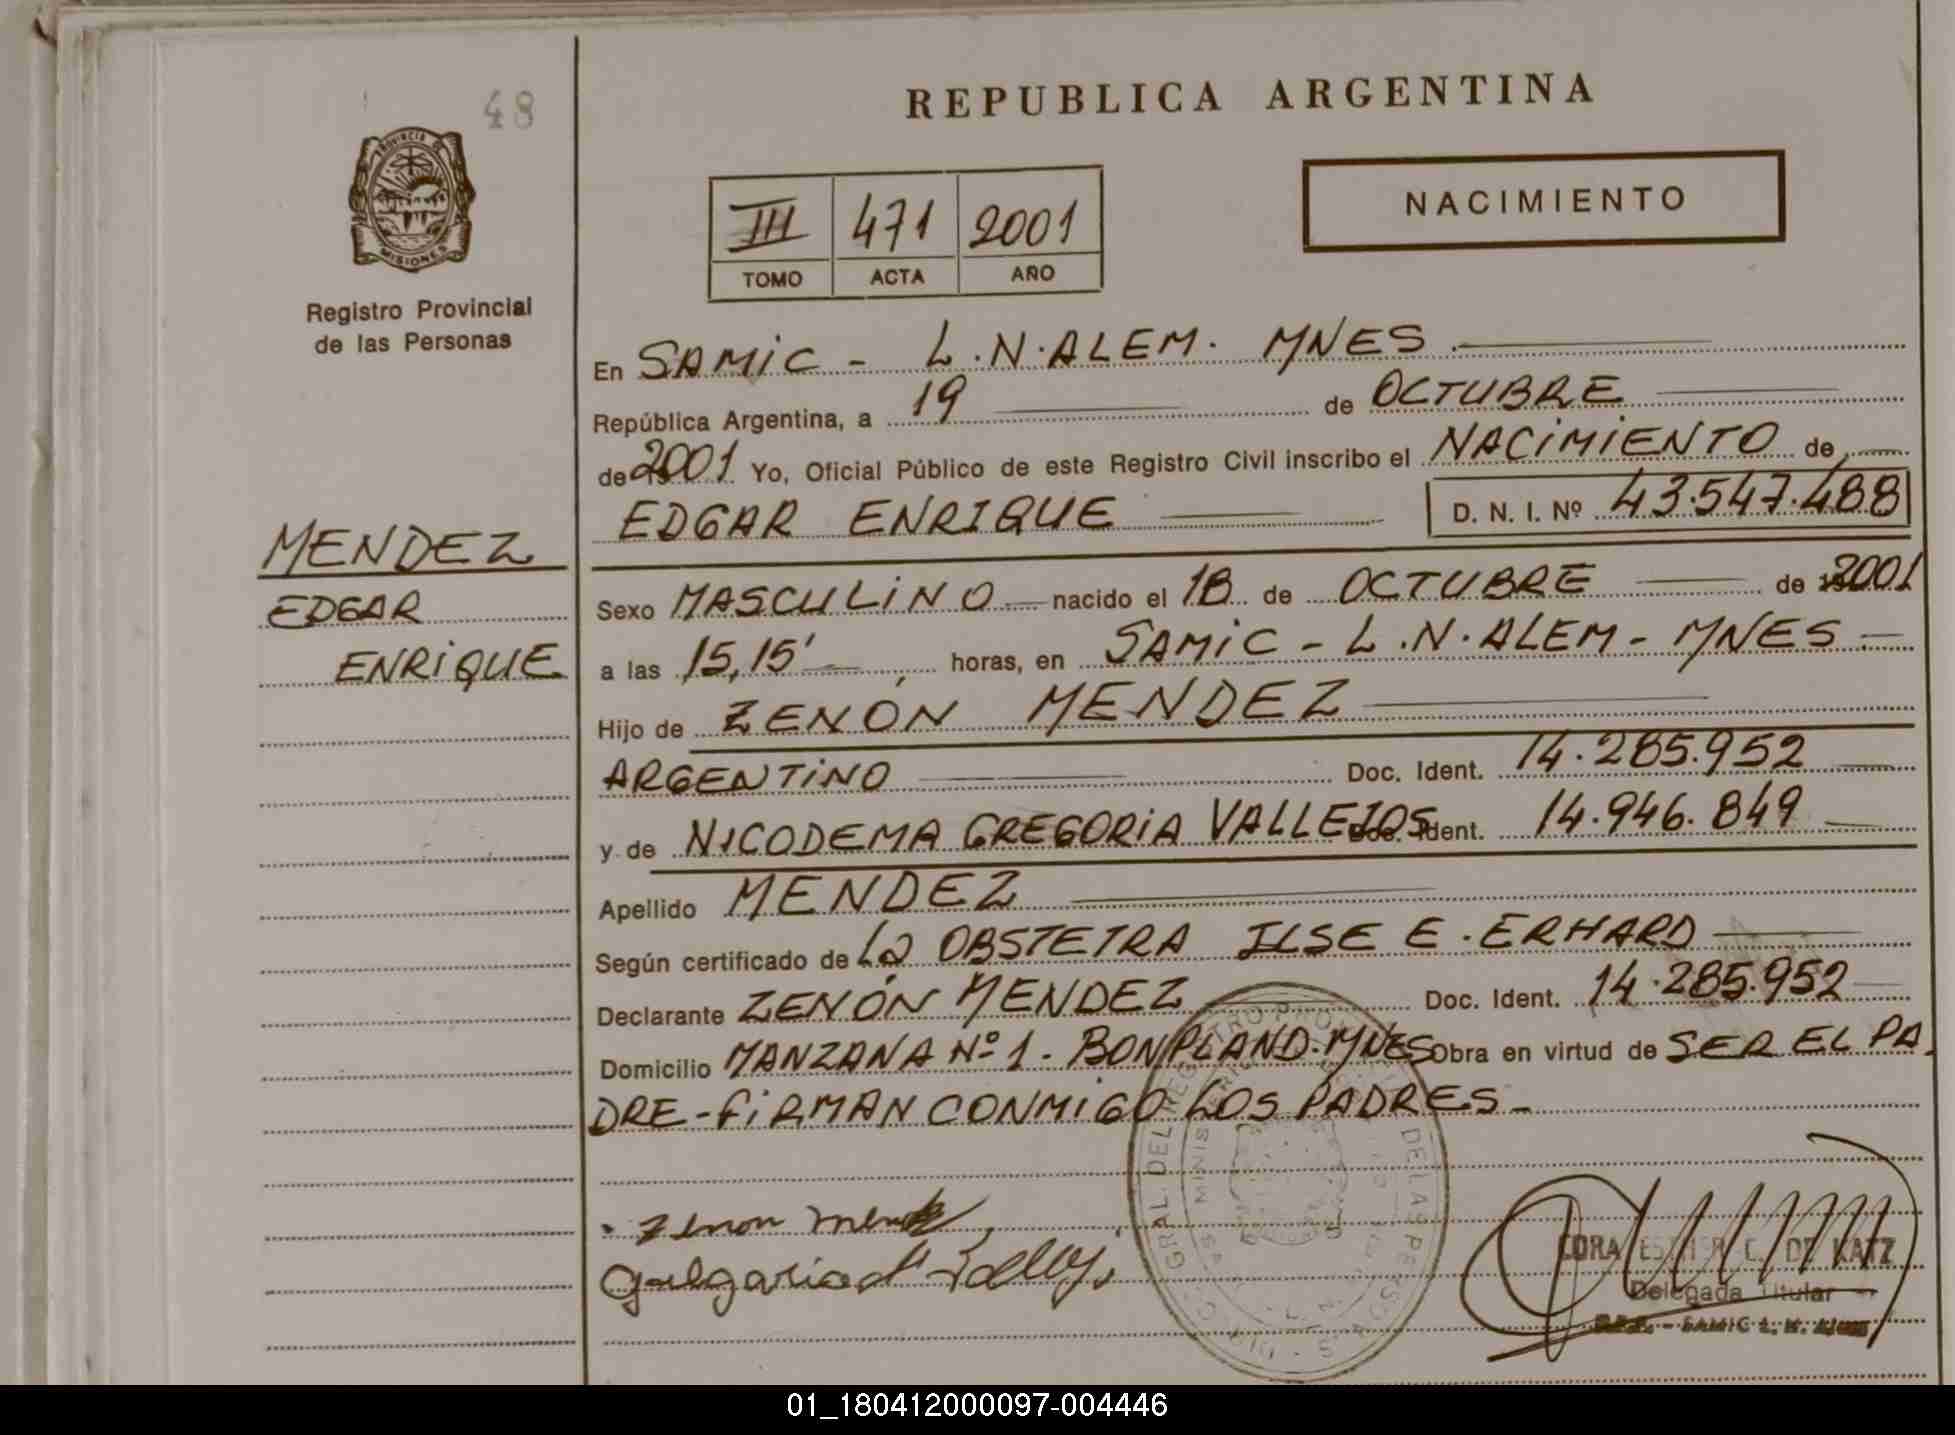 48
REPUBLICA ARGENTINA
PROVINCIA DE
MISIONES
Registro Provincial
de las Personas
NACIMIENTO
III 471 2001
TOMO ACTA AÑO
En SAMIC - L.N.ALEM. MNES.
República Argentina, a 19 de OCTUBRE
de 2001 Yo, Oficial Público de este Registro Civil inscribo el NACIMIENTO de
EDGAR ENRIQUE D. N. I. Nº 43.547.488
MENDEZ
EDGAR
ENRIQUE
Sexo MASCULINO nacido el 18 de OCTUBRE de 2001
a las 15,15' horas, en SAMIC - L.N.ALEM - MNES.
Hijo de ZENÓN MENDEZ
ARGENTINO Doc. Ident. 14.285.952
y de NICODEMA GREGORIA VALLEJOS Doc. Ident. 14.946.849
Apellido MENDEZ
Según certificado de La OBSTETRA ILSE E. ERHARD
Declarante ZENÓN MENDEZ Doc. Ident. 14.285.952
Domicilio MANZANA Nº 1. BONPLAND.MNES Obra en virtud de SER EL PA
DRE - FIRMAN CONMIGO LOS PADRES -
Zenon Mendez
CORA ESTHER C. DE KATZ
Delegada Titular
01_180412000097-004446